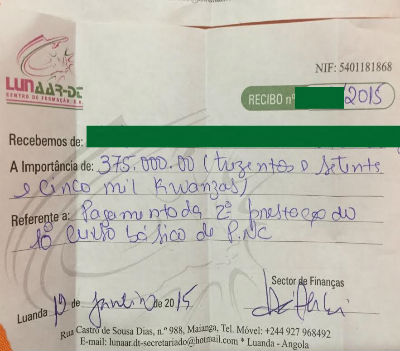 LUNAAR-DT
CENTRO DE FORMAÇÃO
NIF: 5401181868
RECIBO nº 2015
Recebemos de:
A Importância de: 375.000.00 (trezentos e setente
e cinco mil Kwanzas)
Referente a: Pagamento da 2ª prestação do
1º Curso básico de P.NC
Luanda 12 de Janeiro de 2015
Sector de Finanças
Rua Castro de Sousa Dias, n.º 988, Maianga, Tel. Móvel: +244 927 968492
E-mail: lunaar.dt-secretariado@hotmail.com * Luanda - Angola